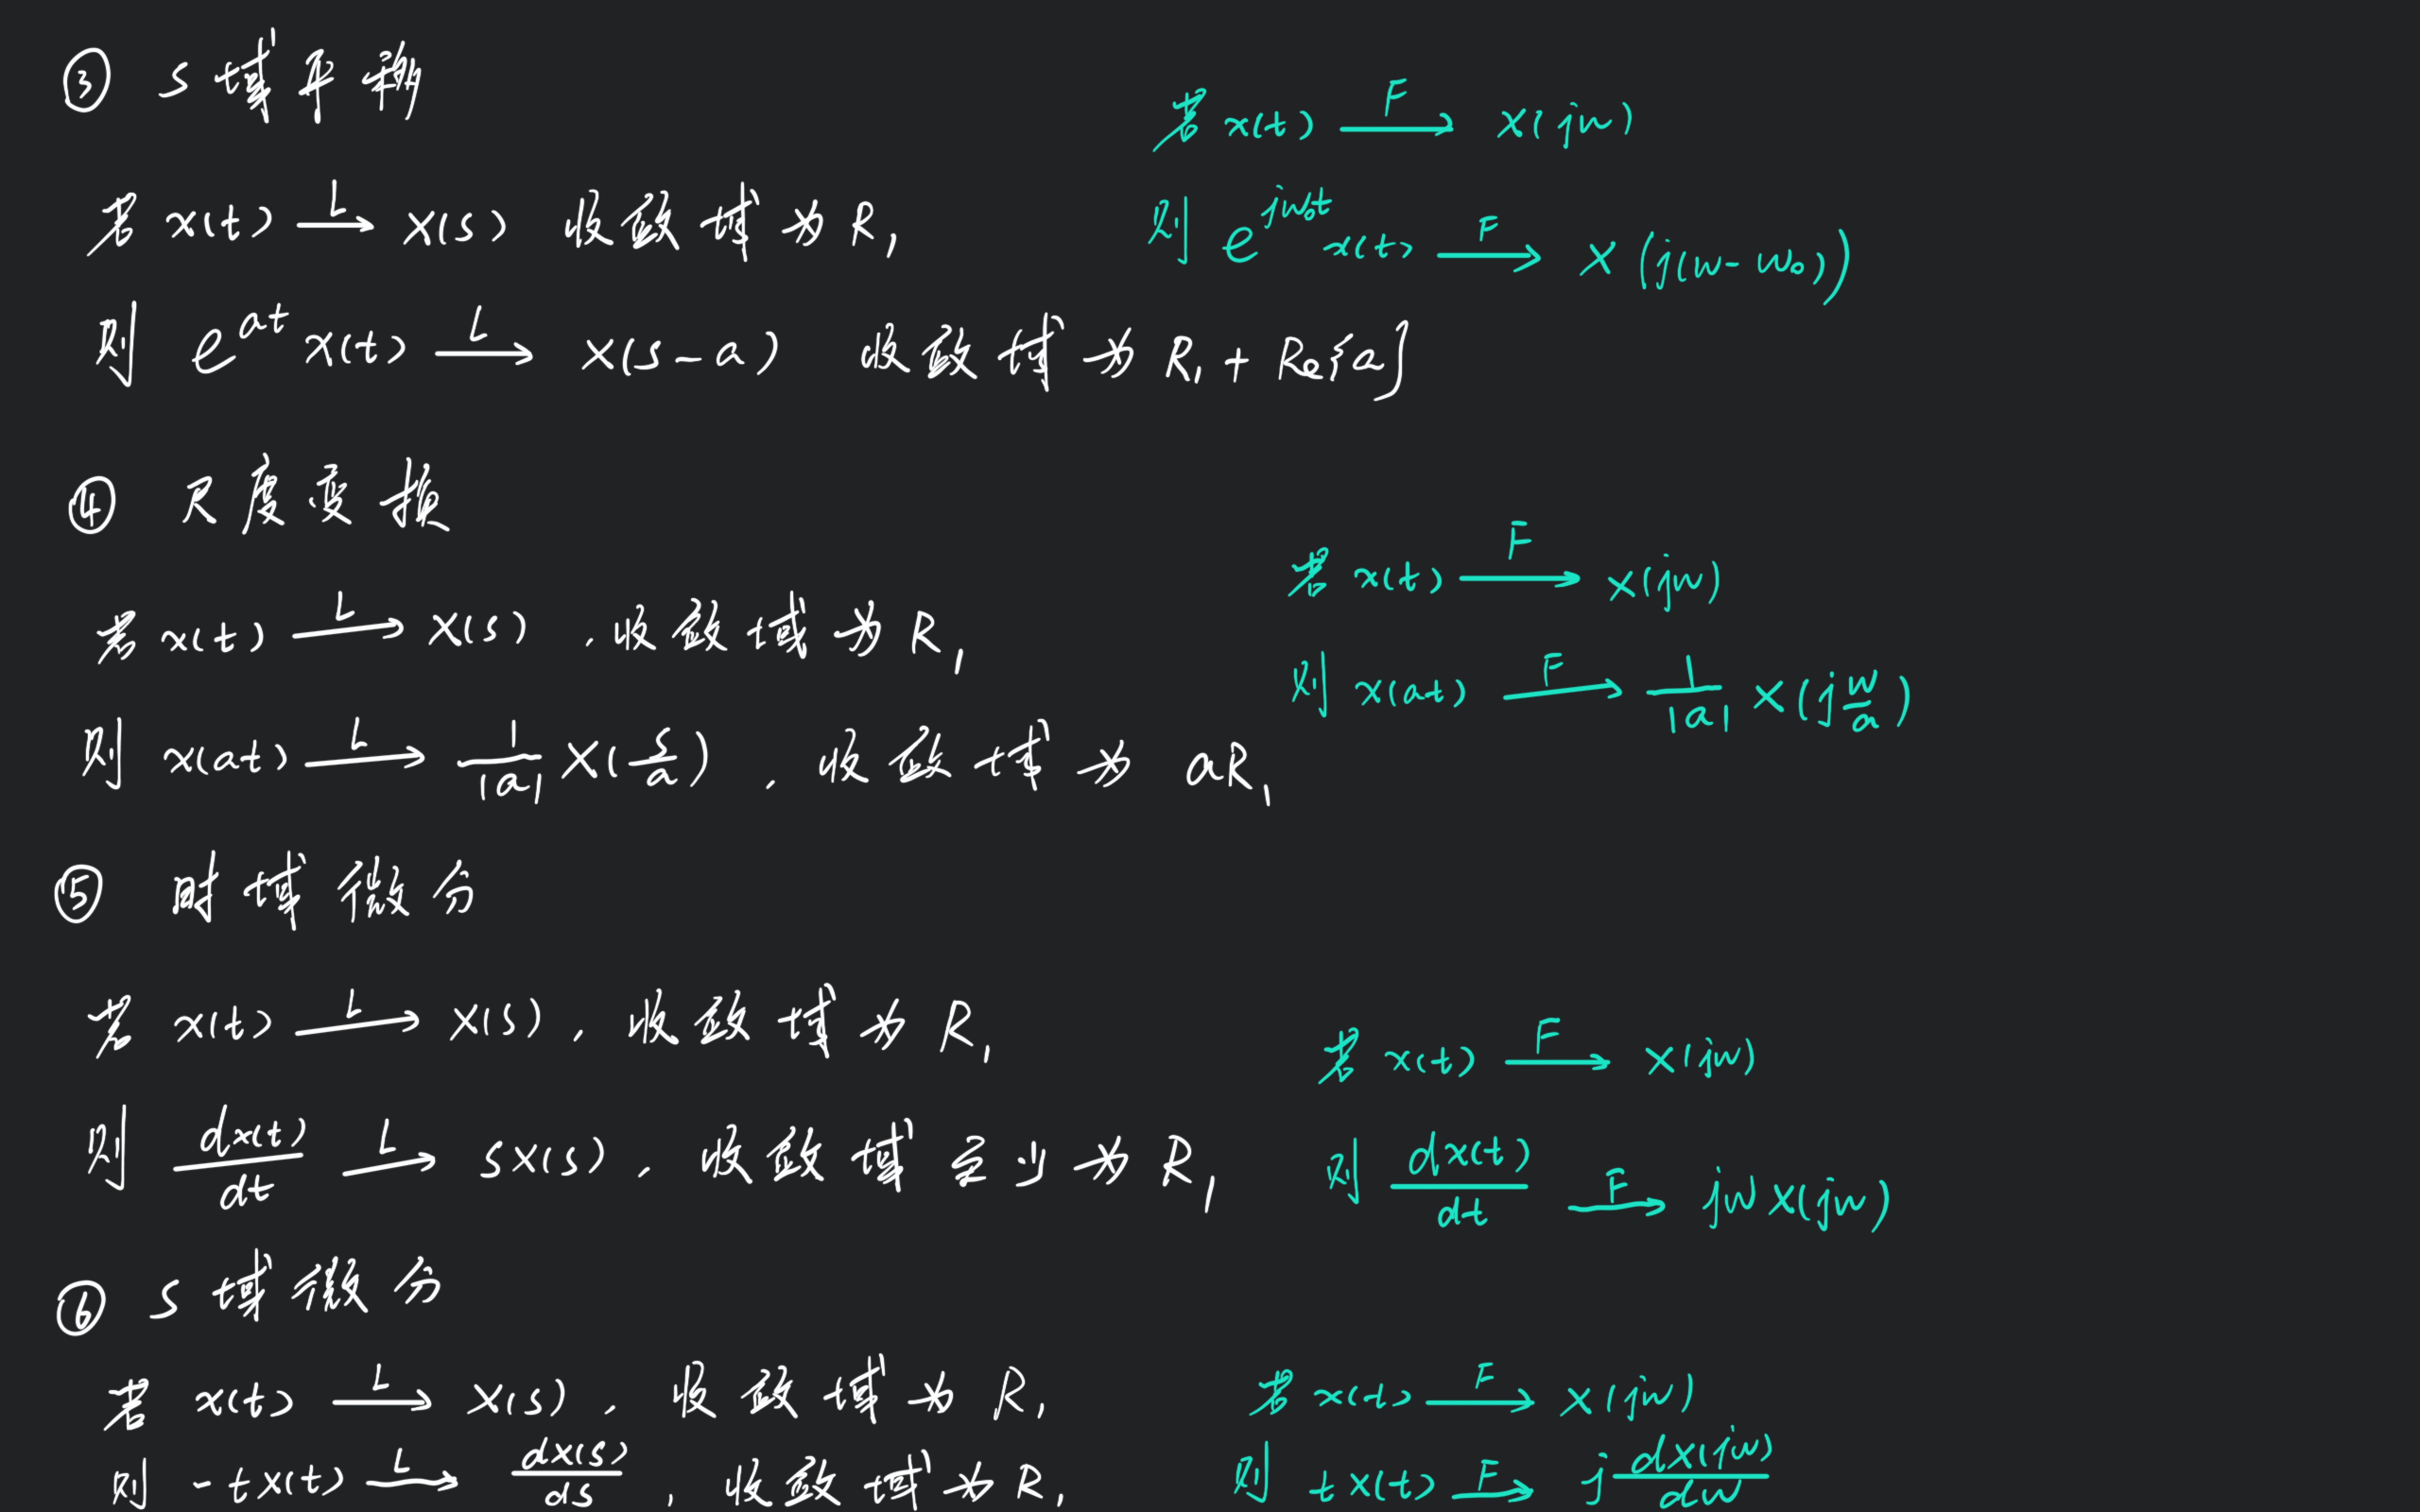 ③ S域平移
若 x(t) —L→ X(s) 收敛域为 R₁
则 e^{at} x(t) —L→ X(s-a) 收敛域为 R₁ + Re{a}
若 x(t) —F→ X(jw)
则 e^{jw₀t} x(t) —F→ X(j(w-w₀))
④ 尺度变换
若 x(t) —L→ X(s) , 收敛域为 R₁
则 x(at) —L→ \frac{1}{|a|} X(\frac{s}{a}) , 收敛域为 aR₁
若 x(t) —F→ X(jw)
则 x(at) —F→ \frac{1}{|a|} X(j\frac{w}{a})
⑤ 时域微分
若 x(t) —L→ X(s) , 收敛域为 R₁
则 \frac{dx(t)}{dt} —L→ sX(s) , 收敛域至少为 R₁
若 x(t) —F→ X(jw)
则 \frac{dx(t)}{dt} —F→ jw X(jw)
⑥ S域微分
若 x(t) —L→ X(s) , 收敛域为 R₁
则 -tx(t) —L→ \frac{dX(s)}{ds} , 收敛域为 R₁
若 x(t) —F→ X(jw)
则 tx(t) —F→ j\frac{dX(jw)}{dw}